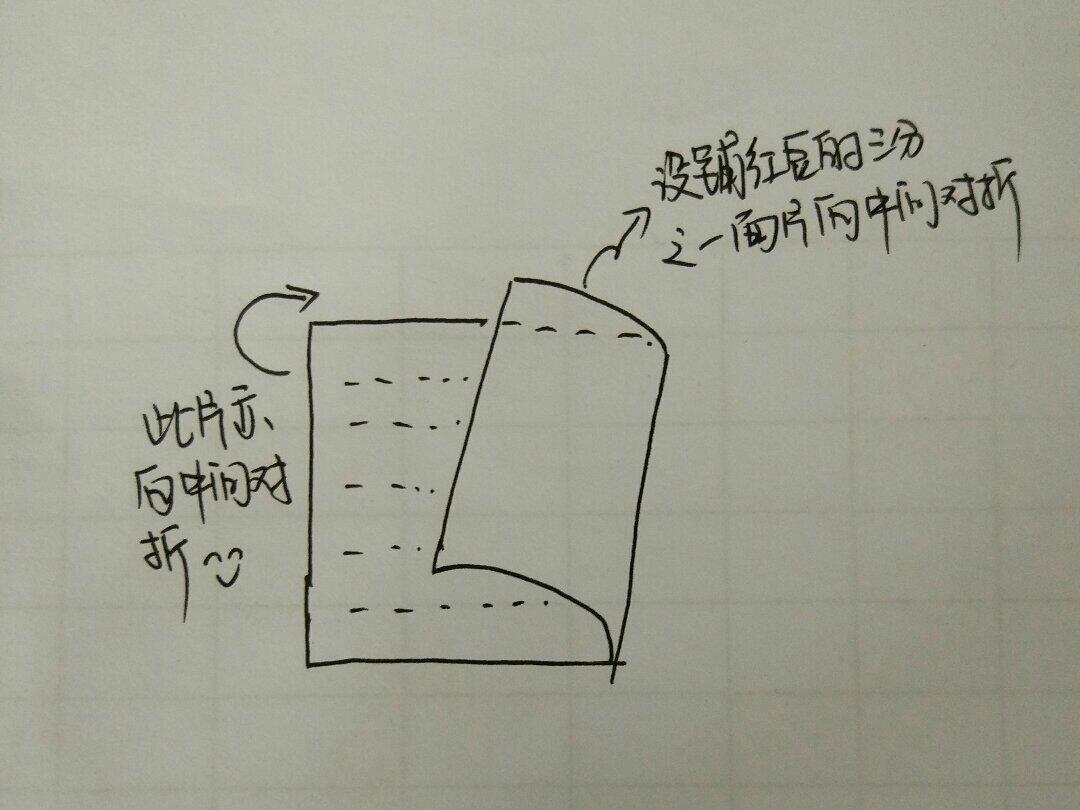 没铺红豆的三分
之一面片向中间对折
此片示、
向中间对
折